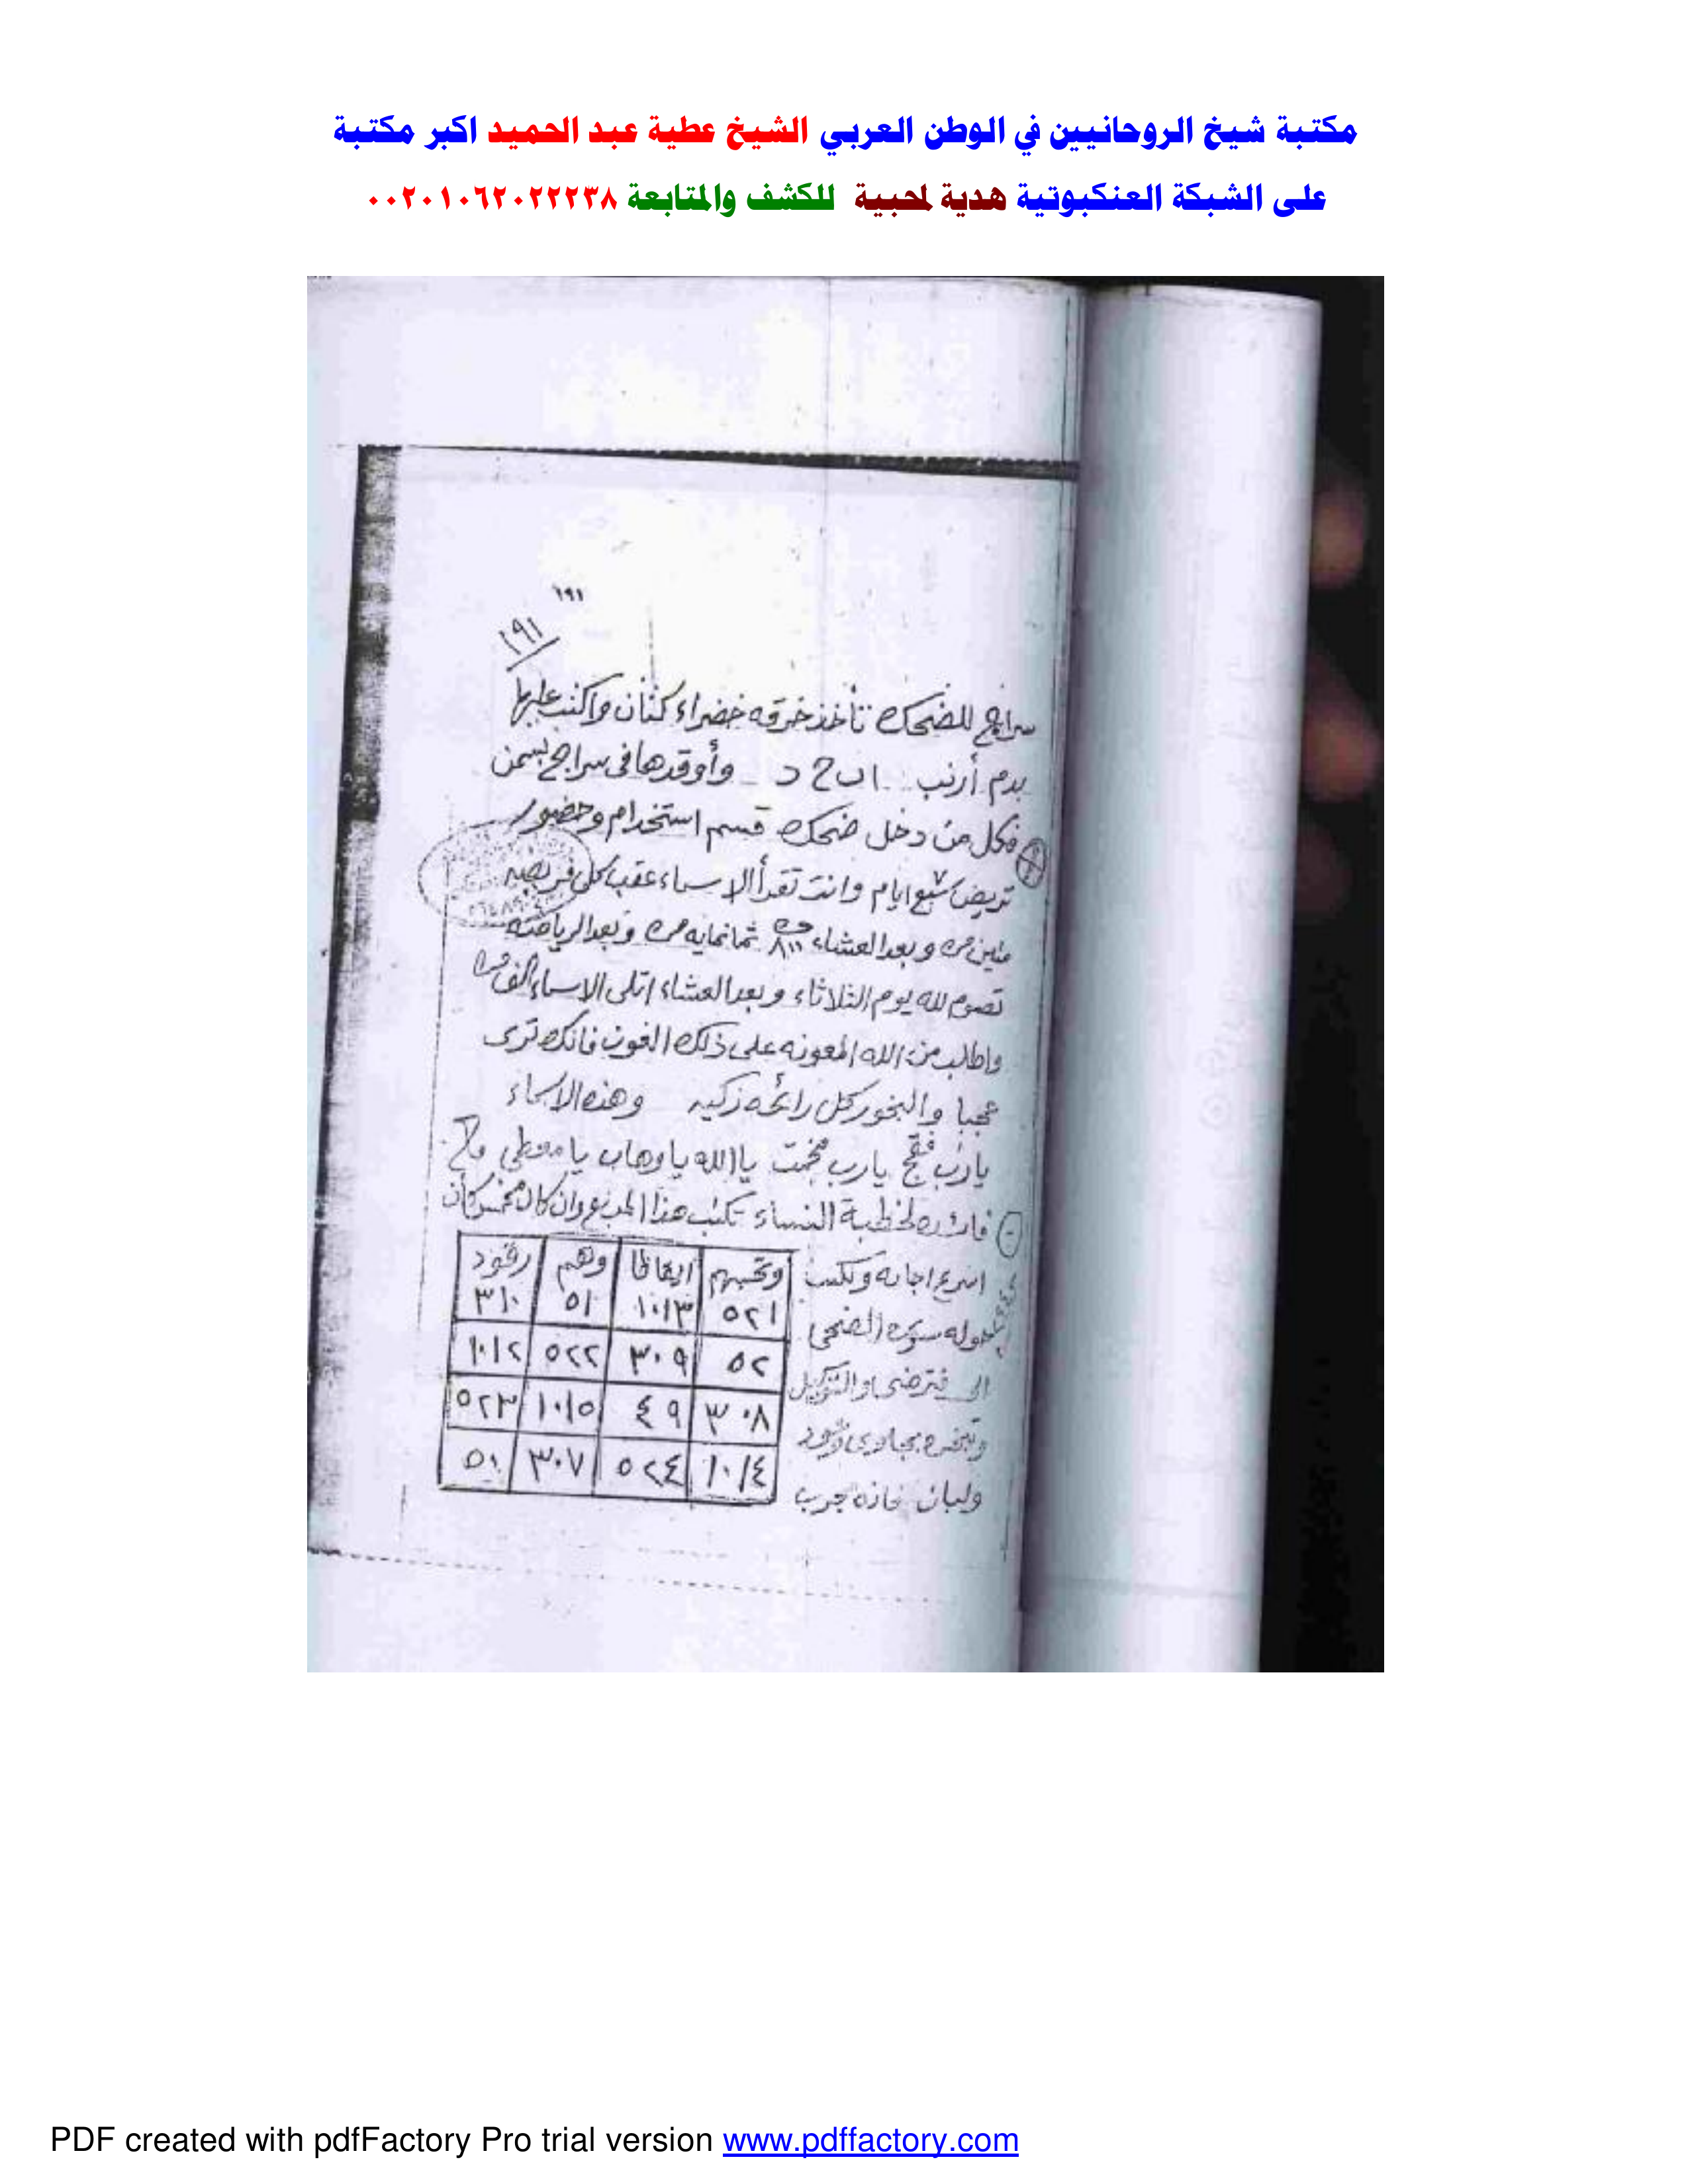 مكتبة شيخ الروحانيين في الوطن العربي الشيخ عطية عبد الحميد اكبر مكتبة
على الشبكة العنكبوتية هدية لمحبية للكشف والمتابعة ٠٠٢٠١٠٦٢٠٢٢٢٣٨
١٩١
١٩١
سراج للضحك تأخذ خرقه خضراء كتان واكتب عليها
بدم أرنب ا ب ح د وأوقدها فى سراج بسمن
فكل من دخل ضحك قسم استخدام وحضور
تريض سبع ٧ ايام وانت تقرأ الاسماء عقب كل فريضه
متين مره وبعد العشاء ٨٠٠ مره ثمانمايه مره وبعد الرياضه
تصوم لله يوم الثلاثاء وبعد العشاء اتلى الاسماء الف مره
واطلب من الله المعونه على ذلك العون فانك ترى
عجبا والبخور كل رائحه زكيه وهذه الاسماء
يارب يارب يا الله يا وهاب يا معطى
فائده لخطبة النساء تكتب هذا المربع وان كان مخمس كان
اسرع اجابه وتكتب
حوله سورة الضحى
الى فترضى والتوكيل
وتبخره بجاوى وعود
ولبان فانه مجرب
وتحسبهم ايقاظا وهم رقود
٥٢١ ١٠١٣ ٥١ ٣١٠
٥٢ ٣٠٩ ٥٢٢ ١٠١٢
٣٠٨ ٤٩ ١٠١٥ ٥٢٣
١٠١٤ ٥٢٤ ٣٠٧ ٥٠
PDF created with pdfFactory Pro trial version www.pdffactory.com